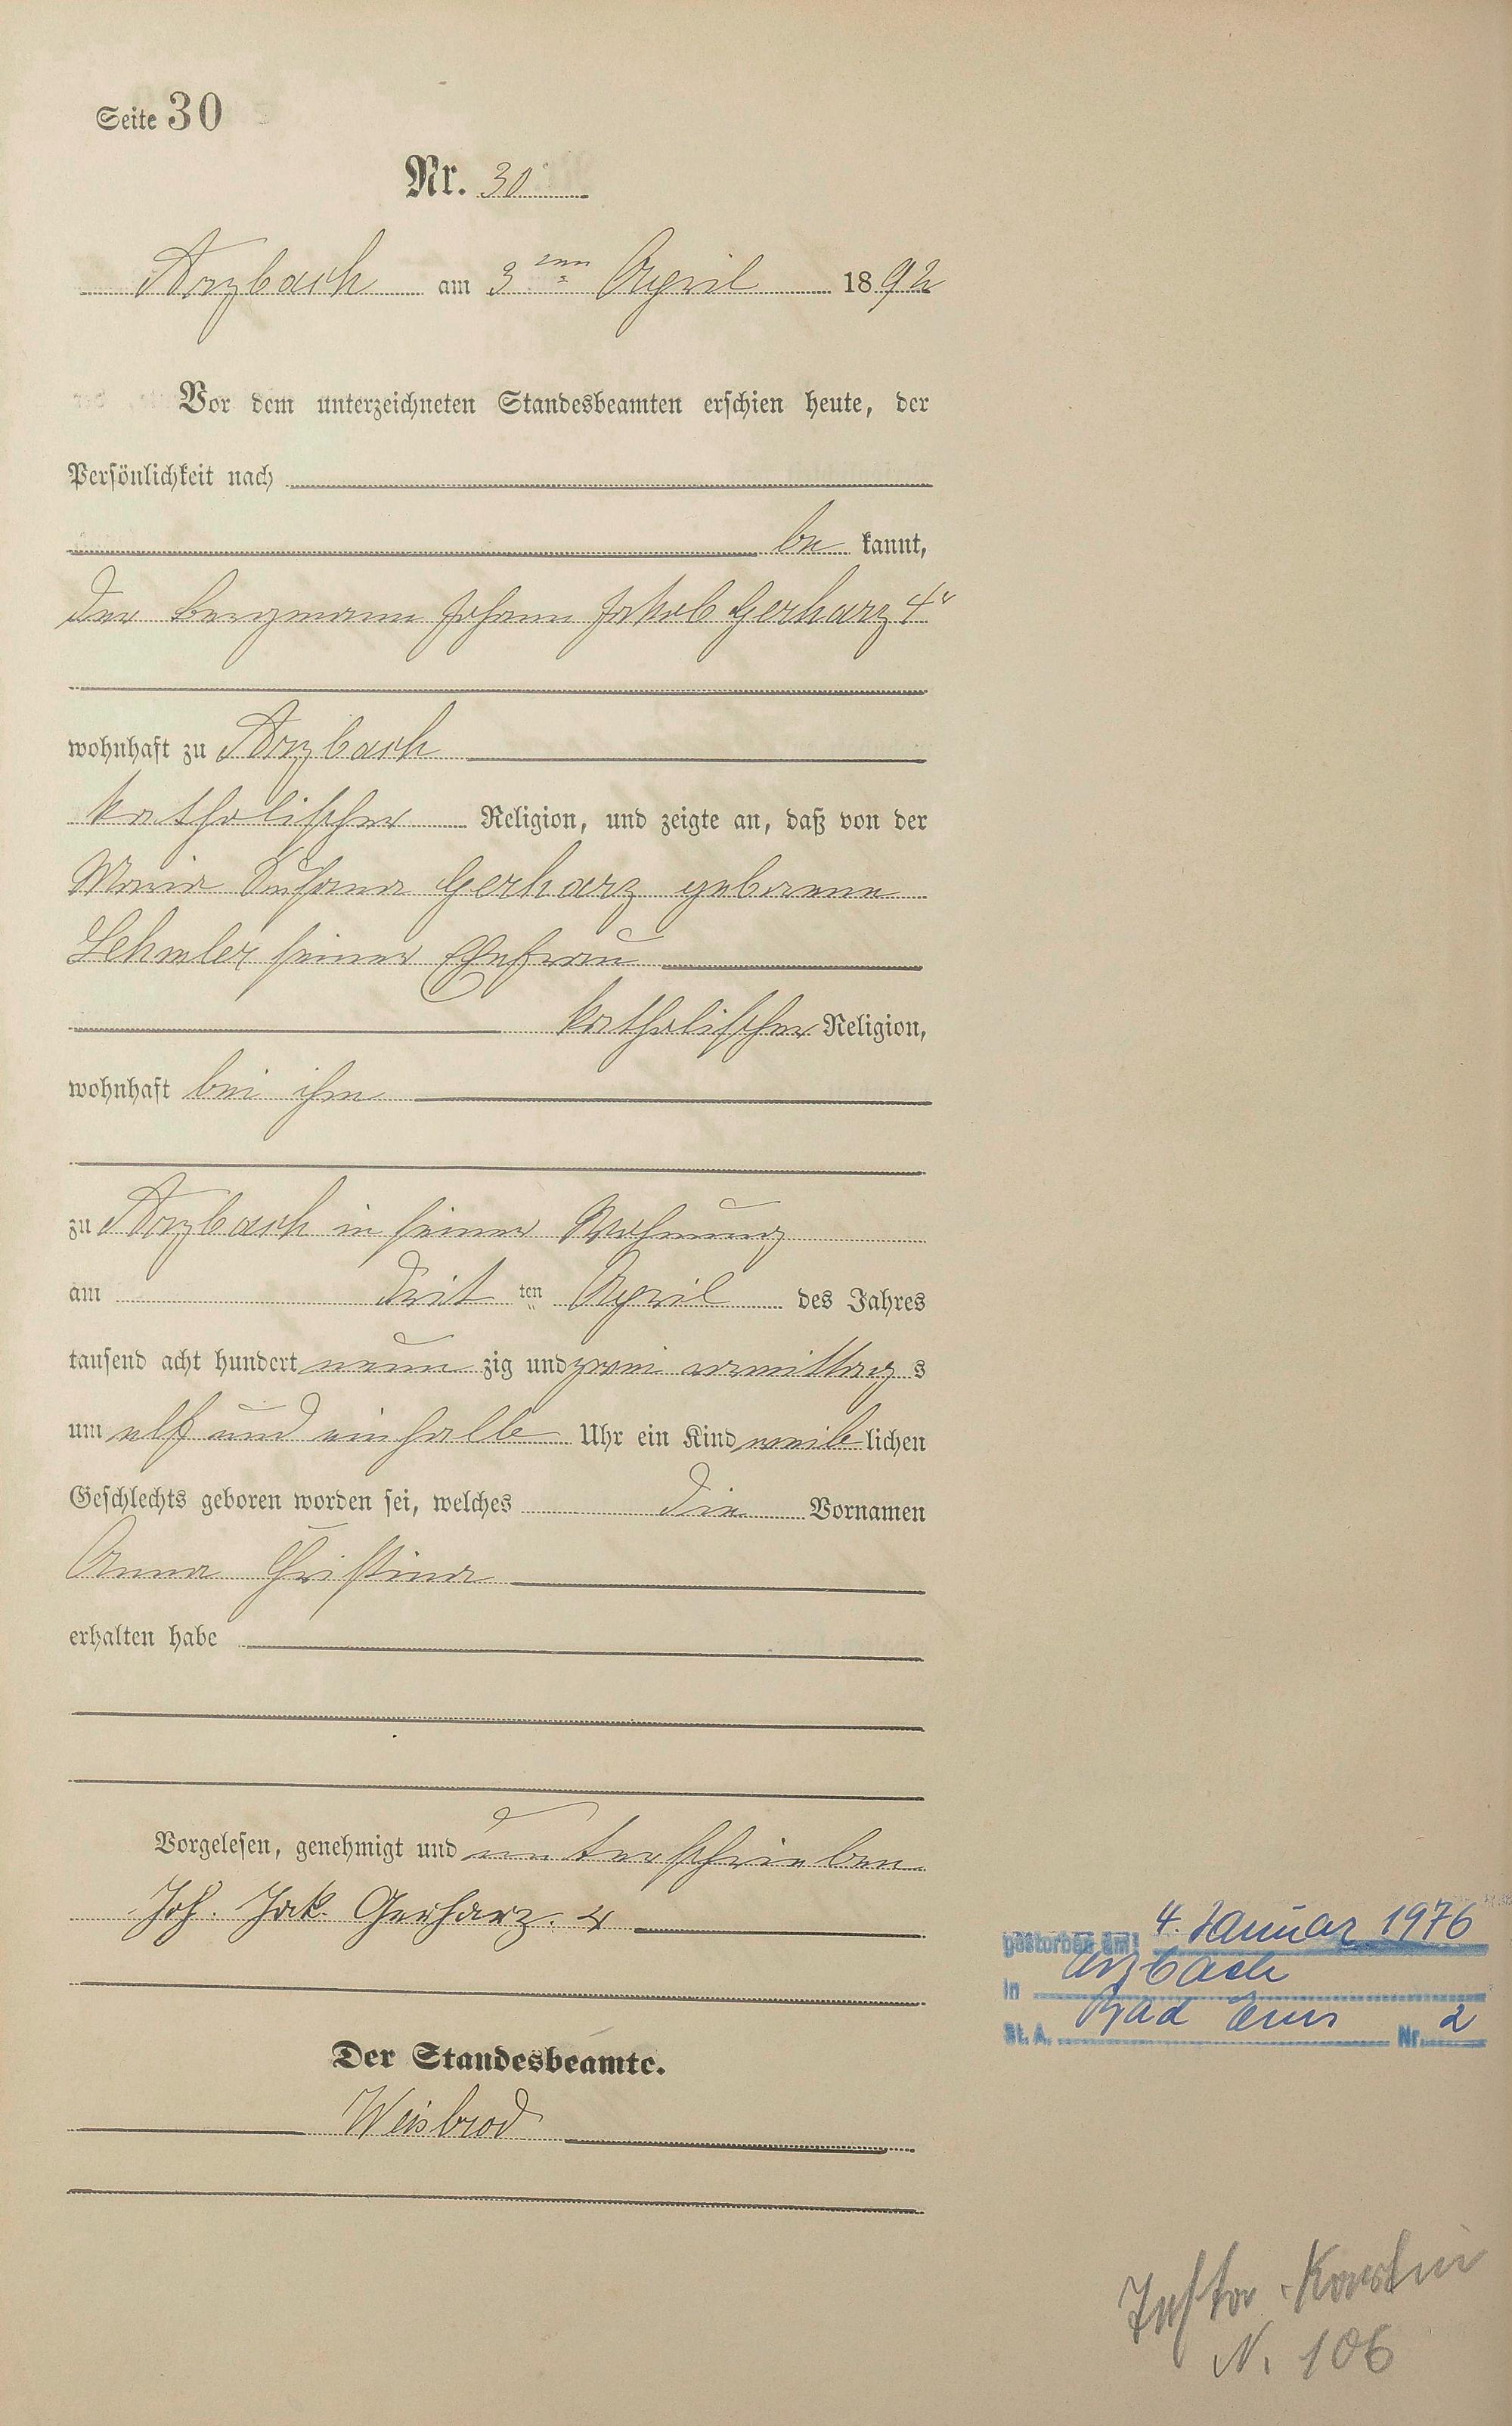 Seite 30
Nr. 30
Arzbach am 3ten April 1892
Vor dem unterzeichneten Standesbeamten erschien heute, der
Persönlichkeit nach
be kannt,
der Bergmann Johann Jakob Gerharz 4r
wohnhaft zu Arzbach
katholischer Religion, und zeigte an, daß von der
Maria Susana Gerharz geborene
Lehmler seiner Ehefrau
katholischer Religion,
wohnhaft bei ihm
zu Arzbach in seiner Wohnung
am drit ten April des Jahres
tausend acht hundert neun zig und zwei vormittag s
um elf und ein halb Uhr ein Kind weib lichen
Geschlechts geboren worden sei, welches die Vornamen
Anna Christina
erhalten habe
Vorgelesen, genehmigt und unterschrieben
Joh. Jak. Gerharz. 4
gestorben am: 4. Januar 1976
in Arzbach
St. A. Bad Ems Nr. 2
Der Standesbeamte.
Weisbrod
N. 106